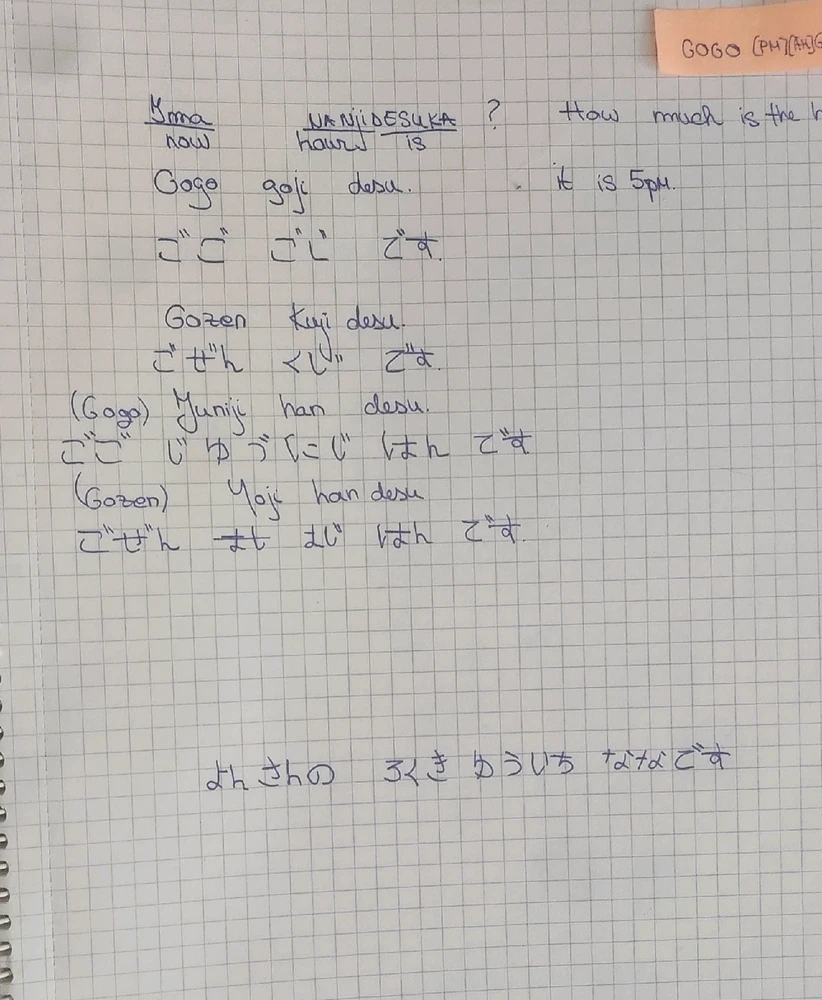 GOGO [PM][AM]G
Ima NANjiDESUKA ? How much is the h
now hours is
Gogo goji desu. it is 5pm.
ごご ごじ です.
Gozen Kuji desu.
ごぜん くじ です.
(Gogo) Juniji han desu.
ごご じゆうにじ はん です
(Gozen) Yoji han desu
ごぜん よじ はん です.
よんさんの ろくきゆういち ななです